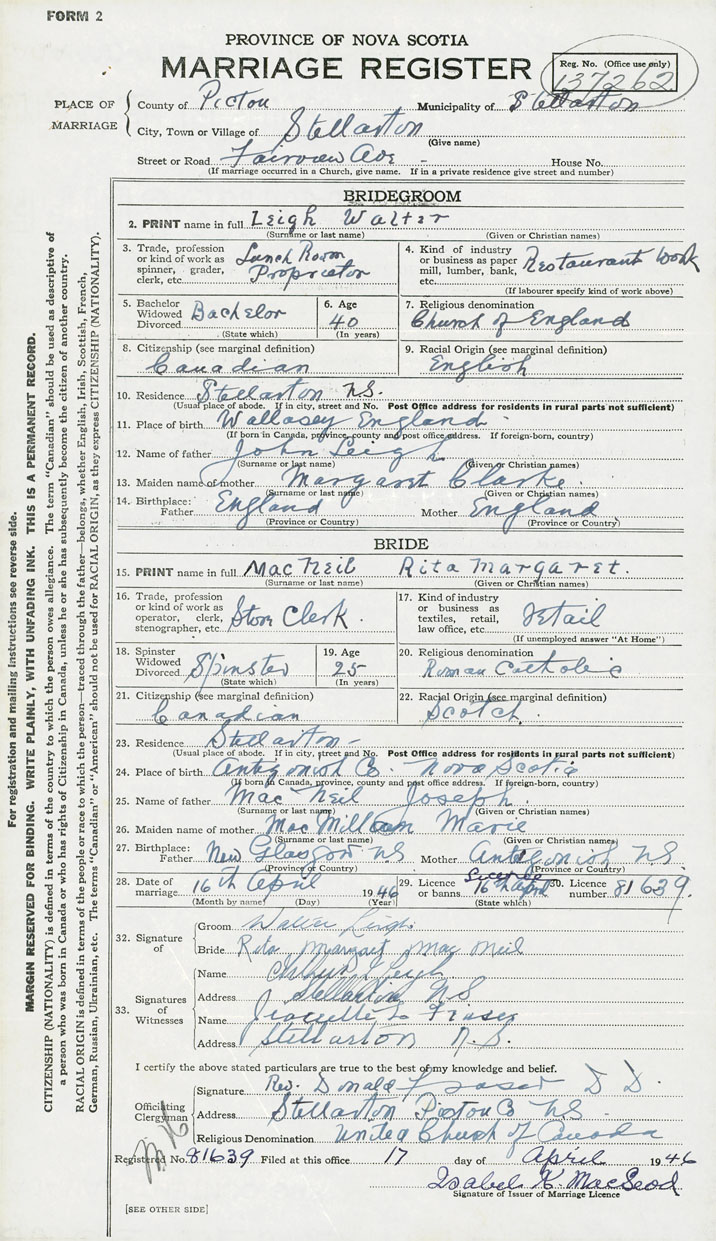 FORM 2
PROVINCE OF NOVA SCOTIA
MARRIAGE REGISTER
Reg. No. (Office use only)
137262
PLACE OF MARRIAGE
County of Pictou Municipality of Stellarton
City, Town or Village of Stellarton
(Give name)
Street or Road Fairview Ave - House No.
(If marriage occurred in a Church, give name. If in a private residence give street and number)
BRIDEGROOM
2. PRINT name in full Leigh Walter
(Surname or last name) (Given or Christian names)
3. Trade, profession or kind of work as spinner, grader, clerk, etc. Lunch Room Proprietor
4. Kind of industry or business as paper mill, lumber, bank, etc. Restaurant Work
(If labourer specify kind of work above)
5. Bachelor Widowed Divorced Bachelor
(State which)
6. Age 40
(In years)
7. Religious denomination
Church of England
8. Citizenship (see marginal definition)
Canadian
9. Racial Origin (see marginal definition)
English
10. Residence Stellarton N.S.
(Usual place of abode. If in city, street and No. Post Office address for residents in rural parts not sufficient)
11. Place of birth Wallasey England
(If born in Canada, province, county and post office address. If foreign-born, country)
12. Name of father John Leigh
(Surname or last name) (Given or Christian names)
13. Maiden name of mother Margaret Clarke.
(Surname or last name) (Given or Christian names)
14. Birthplace: Father England Mother England
(Province or Country) (Province or Country)
BRIDE
15. PRINT name in full MacNeil Rita Margaret.
(Surname or last name) (Given or Christian names)
16. Trade, profession or kind of work as operator, clerk, stenographer, etc. Store Clerk.
17. Kind of industry or business as textiles, retail, law office, etc. retail
(If unemployed answer "At Home")
18. Spinster Widowed Divorced Spinster
(State which)
19. Age 25
(In years)
20. Religious denomination
Roman Catholic
21. Citizenship (see marginal definition)
Canadian
22. Racial Origin (see marginal definition)
Scotch.
23. Residence Stellarton -
(Usual place of abode. If in city, street and No. Post Office address for residents in rural parts not sufficient)
24. Place of birth Antigonish Co Nova Scotia
(If born in Canada, province, county and post office address. If foreign-born, country)
25. Name of father MacNeil Joseph.
(Surname or last name) (Given or Christian names)
26. Maiden name of mother MacMillan Marie
(Surname or last name) (Given or Christian names)
27. Birthplace: Father New Glasgow NS Mother Antigonish N.S.
(Province or Country) (Province or Country)
28. Date of marriage 16th April 1946
(Month by name) (Day) (Year)
29. Licence or banns. 16th April
(State which)
30. Licence number 81639.
32. Signature of
Groom Walter Leigh
Bride Rita Margaret MacNeil
33. Signatures of Witnesses
Name Leigh
Address Stellarton N S
Name Fraser
Address Stellarton N.S.
I certify the above stated particulars are true to the best of my knowledge and belief.
Officiating Clergyman
Signature Rev. Donald Fraser D D.
Address Stellarton Pictou Co NS
Religious Denomination United Church of Canada
Registered No. 81639 Filed at this office 17 day of April 1946
Isabel K MacLeod
Signature of Issuer of Marriage Licence
[SEE OTHER SIDE]
For registration and mailing instructions see reverse side.
MARGIN RESERVED FOR BINDING. WRITE PLAINLY, WITH UNFADING INK. THIS IS A PERMANENT RECORD.
CITIZENSHIP (NATIONALITY) is defined in terms of the country to which the person owes allegiance. The term "Canadian" should be used as descriptive of
a person who was born in Canada or who has rights of Citizenship in Canada, unless he or she has subsequently become the citizen of another country.
RACIAL ORIGIN is defined in terms of the people or race to which the person—traced through the father—belongs, whether English, Irish, Scottish, French,
German, Russian, Ukrainian, etc. The terms "Canadian" or "American" should not be used for RACIAL ORIGIN, as they express CITIZENSHIP (NATIONALITY).